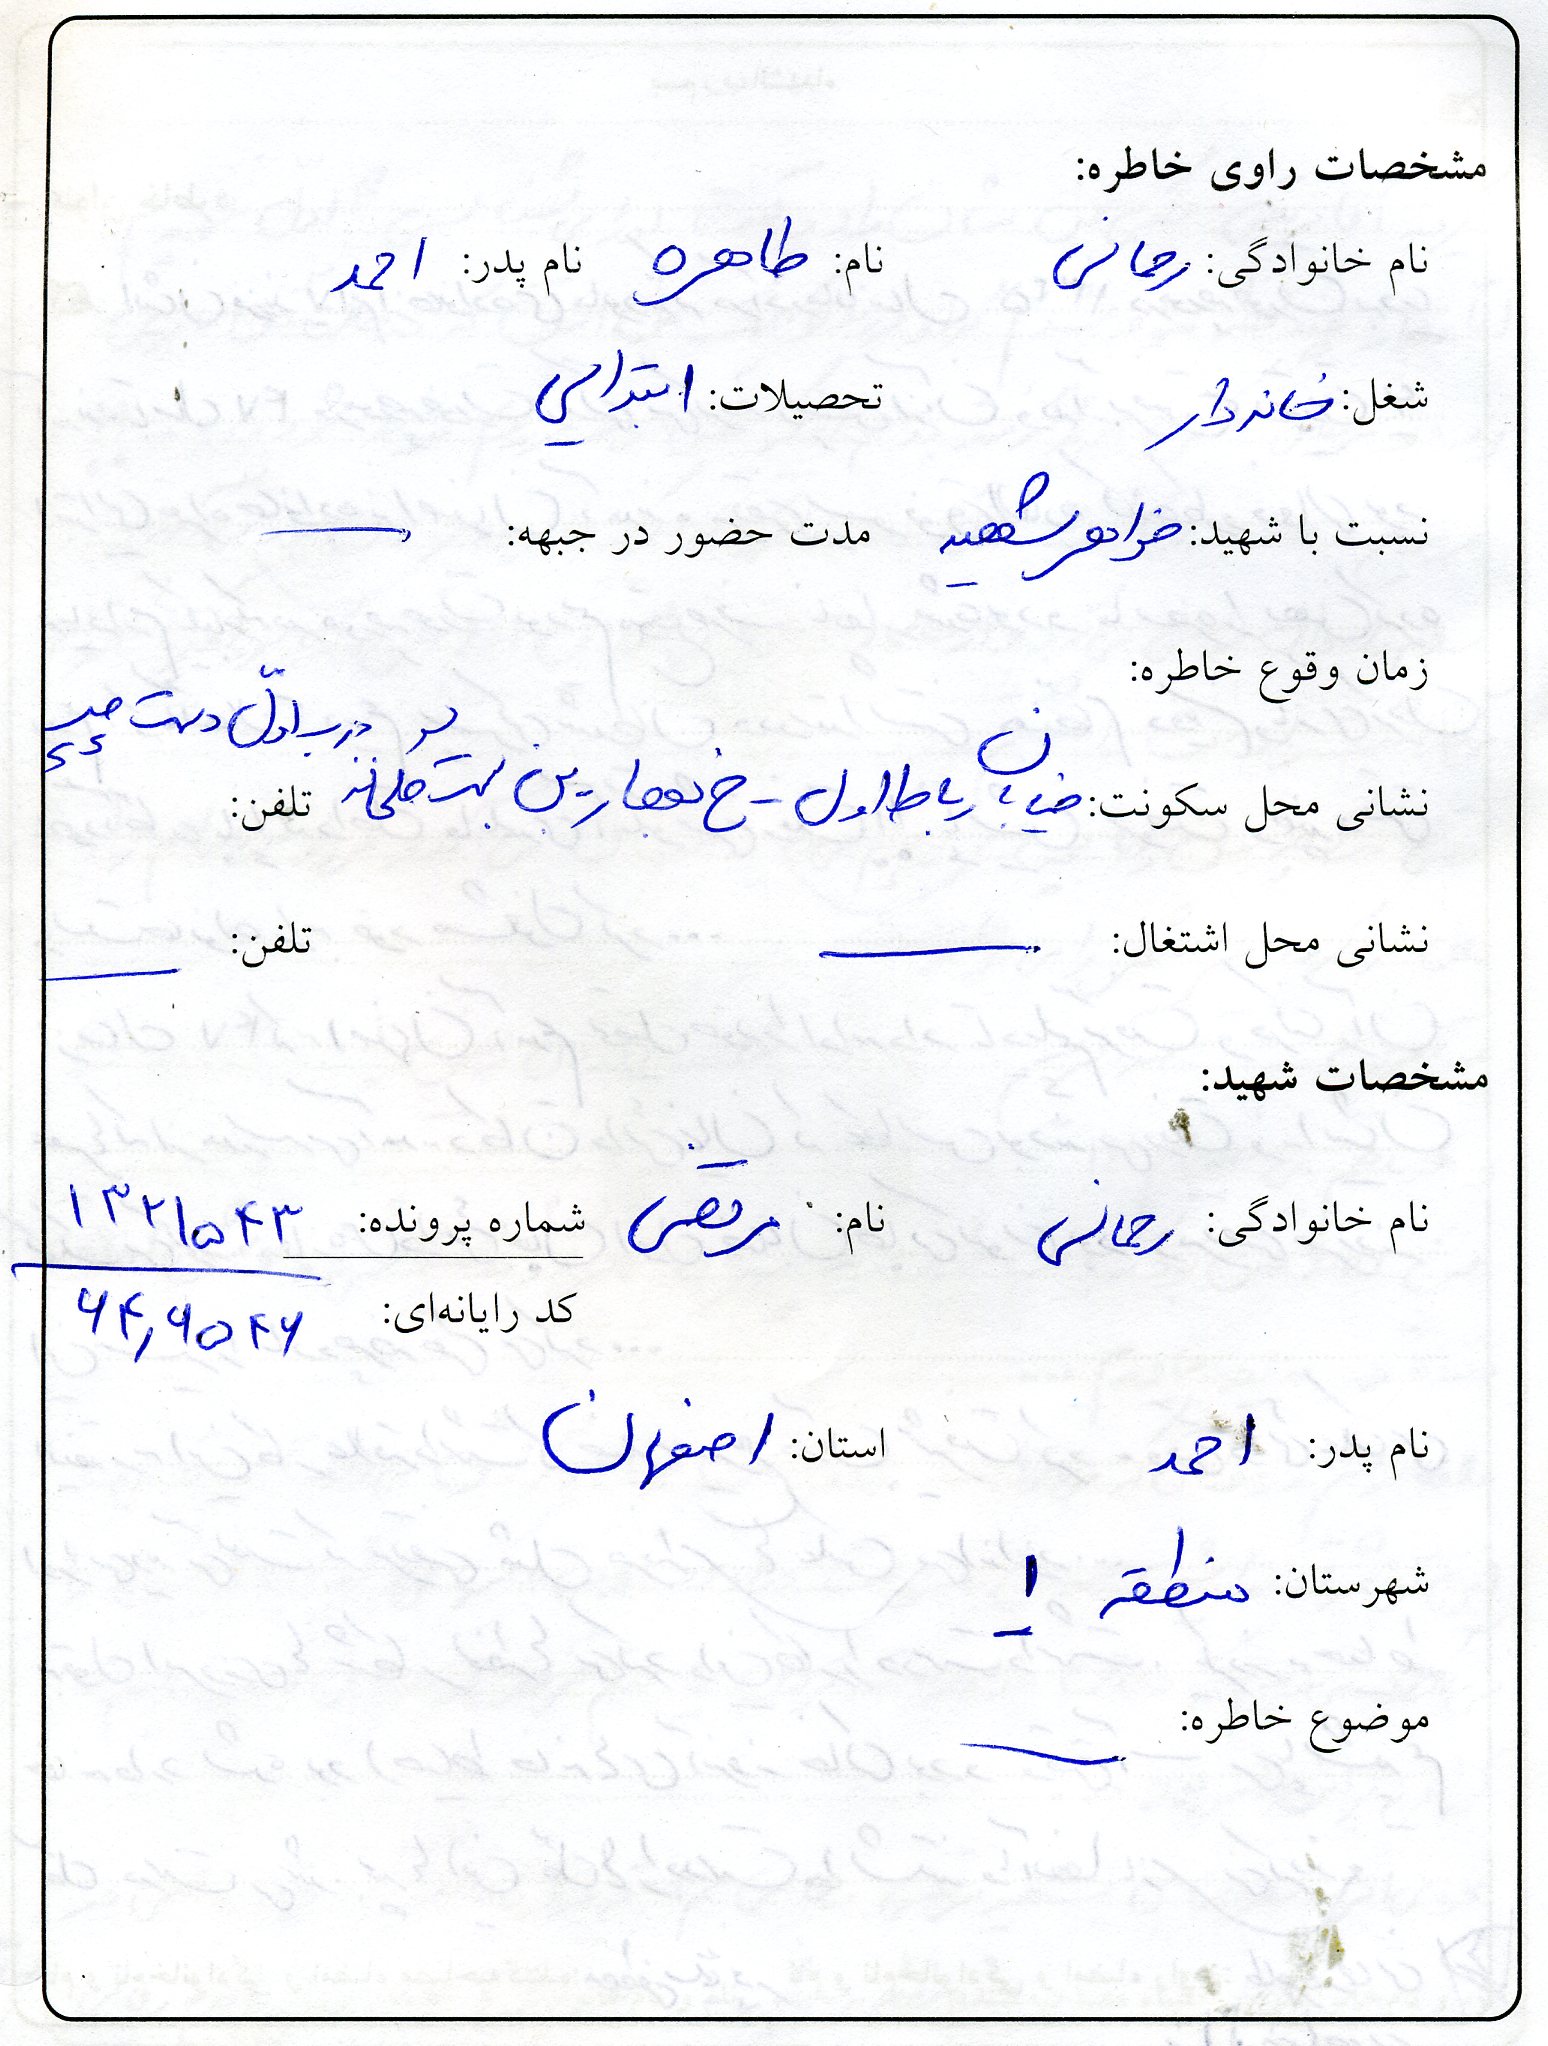 مشخصات راوی خاطره:
نام خانوادگی: رحمانی نام: طاهره نام پدر: احمد
شغل: خانه دار تحصیلات: ابتدایی
نسبت با شهید: خواهر شهید مدت حضور در جبهه: —
زمان وقوع خاطره:
درب اول دست
نشانی محل سکونت: خیابان رباط اول - خ بن تلفن:
نشانی محل اشتغال: — تلفن: —
مشخصات شهید:
نام خانوادگی: رحمانی نام: مرتضی شماره پرونده: ۱۳۲۱۵۴۳
کد رایانه‌ای:
نام پدر: احمد استان: اصفهان
شهرستان: منطقه ۱
موضوع خاطره: —